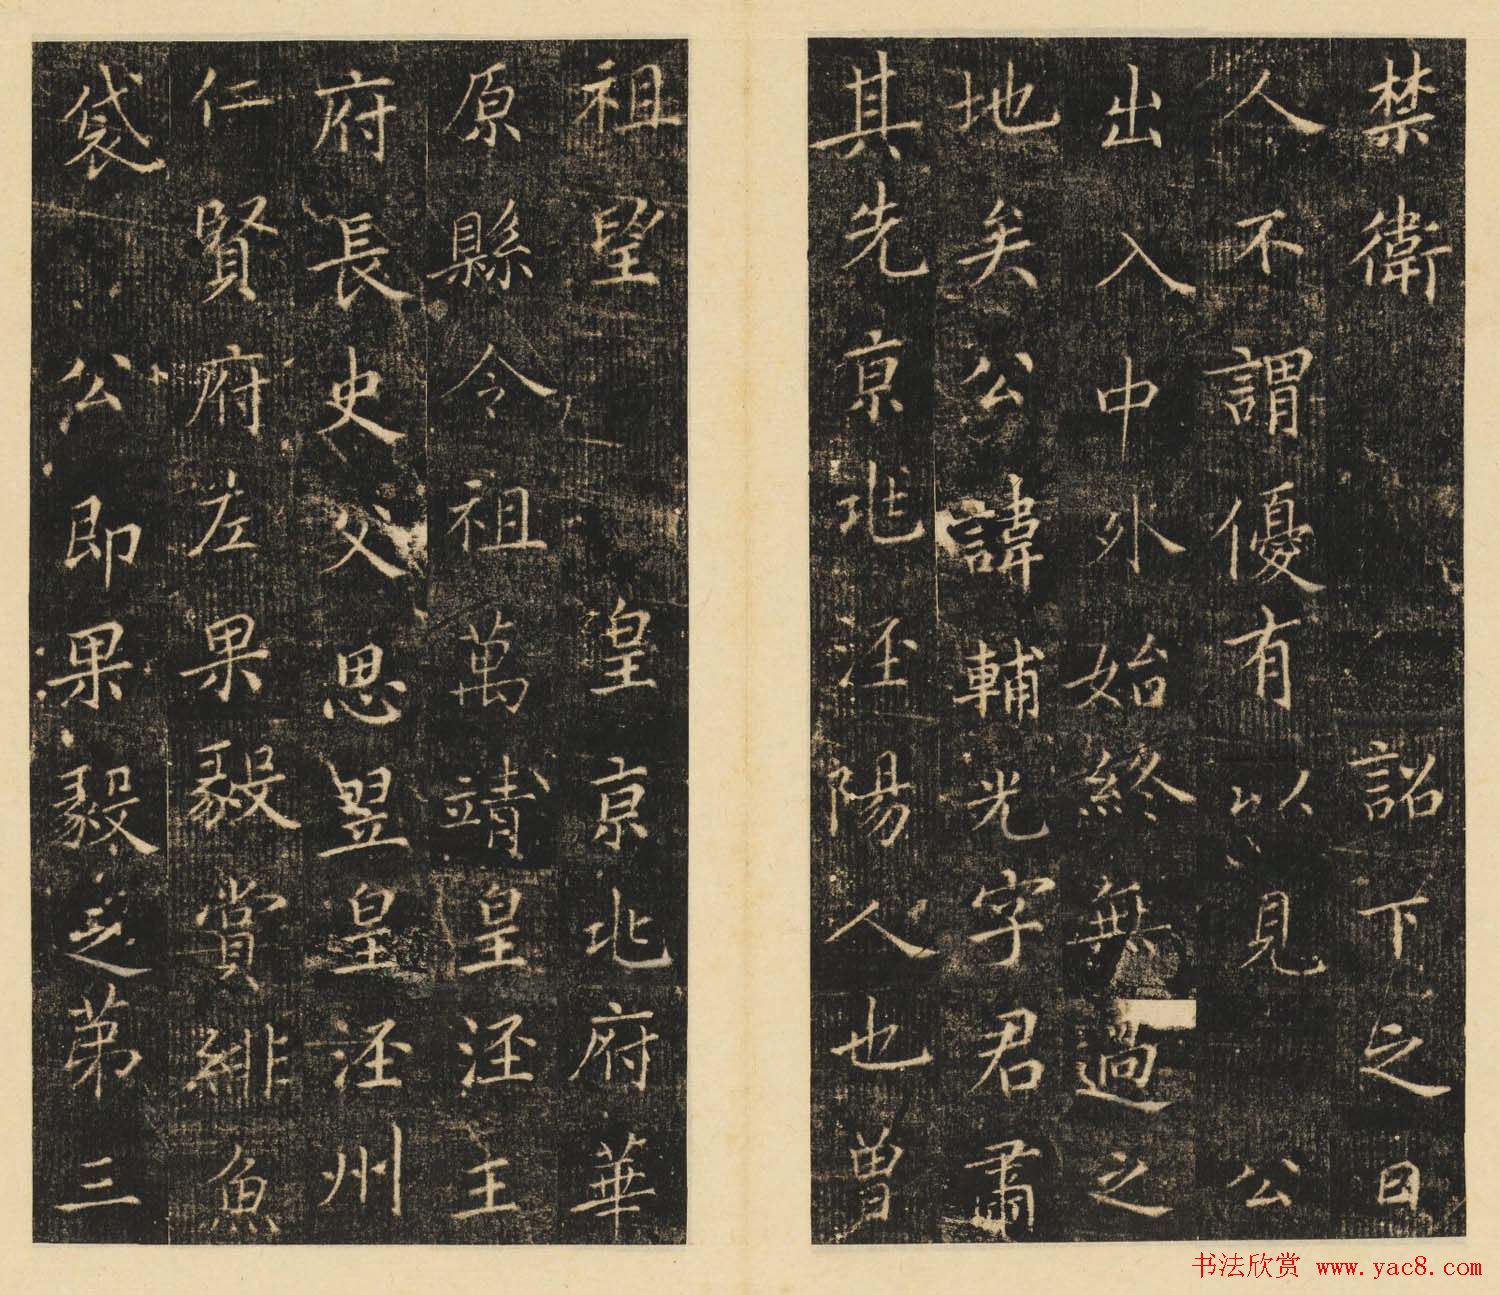 禁衛詔下之日
人不謂優有以見公
出入中外始終無過之
地矣公諱輔光字君肅
其先京兆涇陽人也曾
祖望皇京兆府華
原縣令祖萬靖皇涇王
府長史父思昱皇涇州
仁賢府左果毅賞緋魚
袋公即果毅之第三
书法欣赏 www.yac8.com